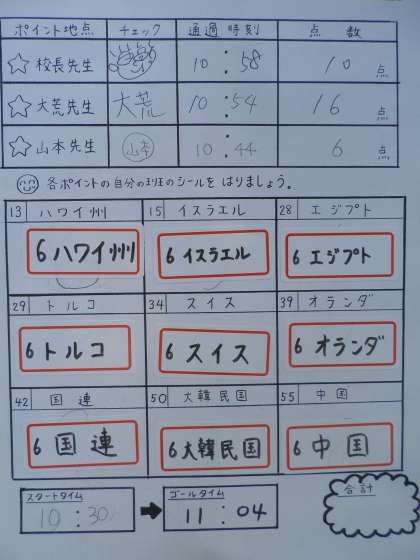 ポイント地点 チェック 通過時刻 点数
校長先生 10:58 10点
大荒先生 大荒 10:54 16点
山本先生 山本 10:44 6点
各ポイントの自分の班のシールをはりましょう。
13 ハワイ州 15 イスラエル 28 エジプト
6 ハワイ州 6 イスラエル 6 エジプト
29 トルコ 34 スイス 39 オランダ
6 トルコ 6 スイス 6 オランダ
42 国連 50 大韓民国 55 中国
6 国連 6 大韓民国 6 中国
スタートタイム ゴールタイム 合計
10:30 11:04